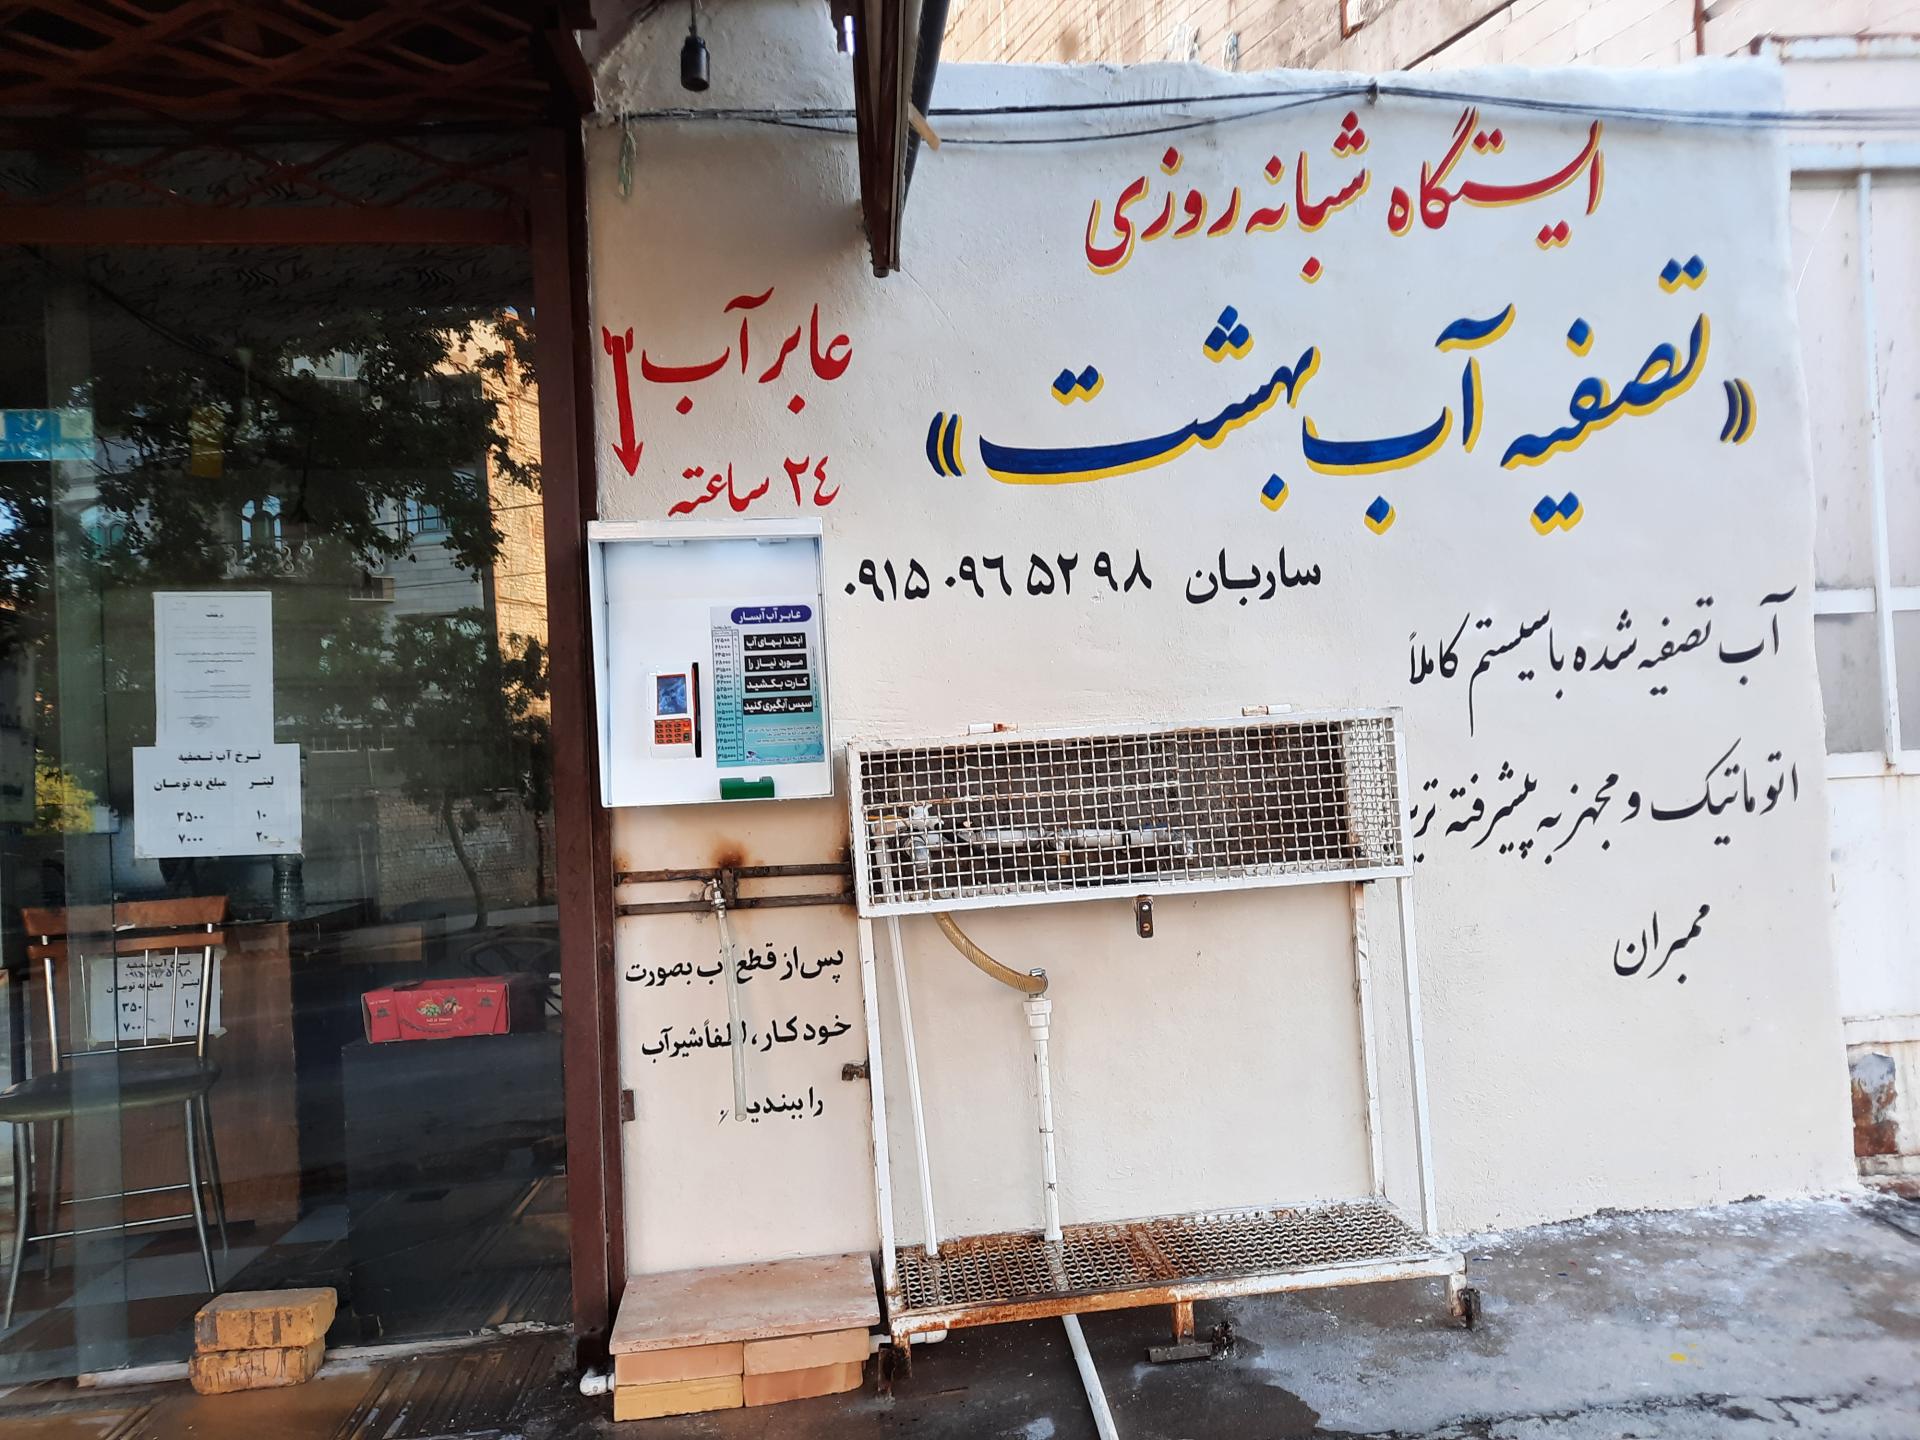 ایستگاه شبانه روزی
«تصفیه آب بهشت»
عابر آب
۲۴ ساعته
ساربان ۰۹۱۵ ۰۹۶ ۵۲ ۹۸
آب تصفیه شده با سیستم کاملاً
اتوماتیک و مجهز به پیشرفته ترین
ممبران
عابر آب آبسار
ابتدا بهای آب
مورد نیاز را
کارت بکشید
سپس آبگیری کنید
پس از قطع آب بصورت
خودکار، لطفاً شیر آب
را ببندید
نرخ آب تصفیه
لیتر مبلغ به تومان
۱۰ ۳۵۰۰
۲۰ ۷۰۰۰
نرخ آب تصفیه
لیتر مبلغ به تومان
۱۰ ۳۵۰
۲۰ ۷۰۰